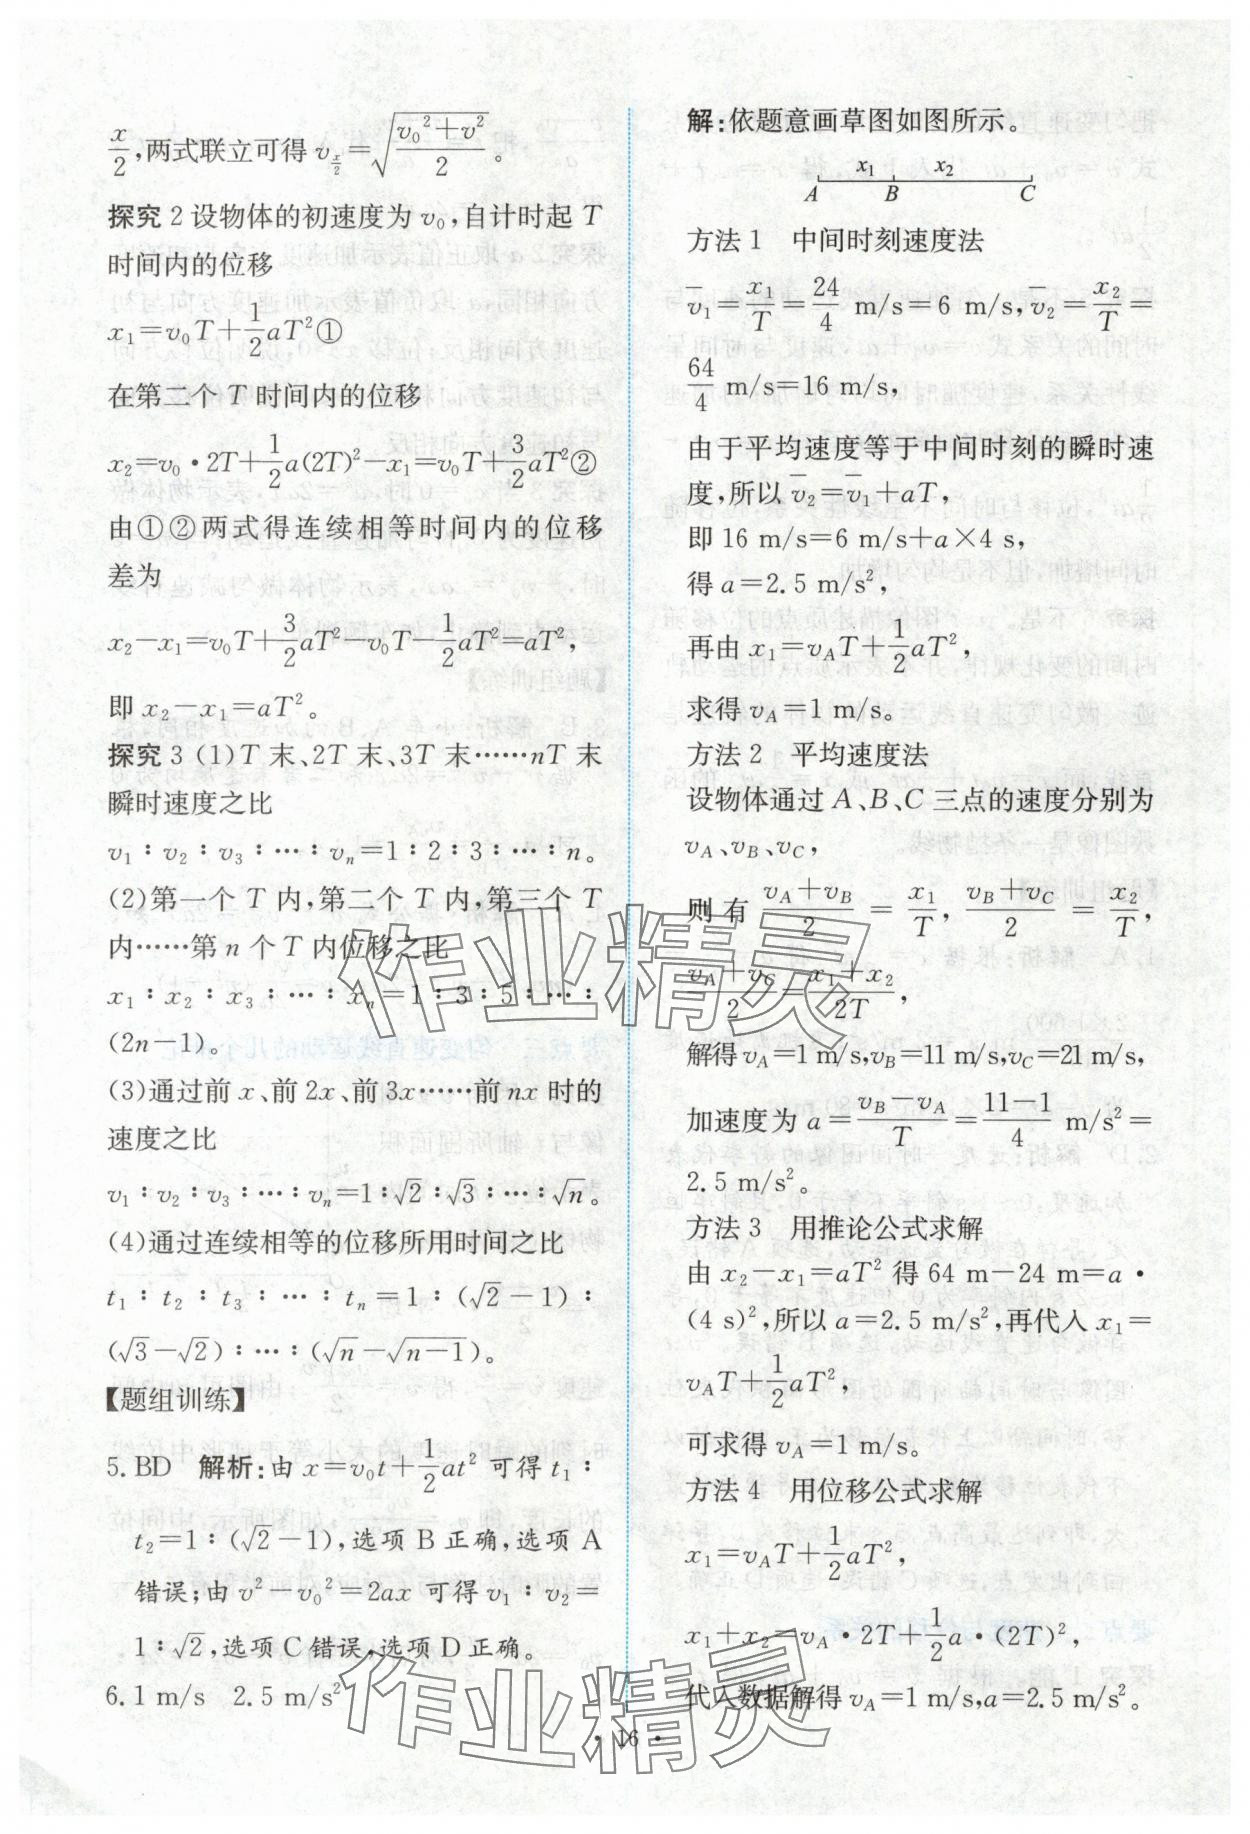 x/2,两式联立可得 v_{x/2}=√((v₀²+v²)/2)。
探究 2 设物体的初速度为 v₀,自计时起 T
时间内的位移
x₁=v₀T+1/2aT²①
在第二个 T 时间内的位移
x₂=v₀·2T+1/2a(2T)²-x₁=v₀T+3/2aT²②
由①②两式得连续相等时间内的位移
差为
x₂-x₁=v₀T+3/2aT²-v₀T-1/2aT²=aT²,
即 x₂-x₁=aT²。
探究 3 (1)T 末、2T 末、3T 末……nT 末
瞬时速度之比
v₁∶v₂∶v₃∶…∶vₙ=1∶2∶3∶…∶n。
(2)第一个 T 内,第二个 T 内,第三个 T
内……第 n 个 T 内位移之比
x₁∶x₂∶x₃∶…∶xₙ=1∶3∶5∶…∶
(2n-1)。
(3)通过前 x、前 2x、前 3x……前 nx 时的
速度之比
v₁∶v₂∶v₃∶…∶vₙ=1∶√2∶√3∶…∶√n。
(4)通过连续相等的位移所用时间之比
t₁∶t₂∶t₃∶…∶tₙ=1∶(√2-1)∶
(√3-√2)∶…∶(√n-√(n-1))。
【题组训练】
5.BD 解析:由 x=v₀t+1/2at² 可得 t₁∶
t₂=1∶(√2-1),选项 B 正确,选项 A
错误;由 v²-v₀²=2ax 可得 v₁∶v₂=
1∶√2,选项 C 错误,选项 D 正确。
6.1 m/s 2.5 m/s²
解:依题意画草图如图所示。
x₁ x₂
A B C
方法 1 中间时刻速度法
v̄₁=x₁/T=24/4 m/s=6 m/s,v̄₂=x₂/T=
64/4 m/s=16 m/s,
由于平均速度等于中间时刻的瞬时速
度,所以 v̄₂=v̄₁+aT,
即 16 m/s=6 m/s+a×4 s,
得 a=2.5 m/s²,
再由 x₁=v_A T+1/2aT²,
求得 v_A=1 m/s。
方法 2 平均速度法
设物体通过 A、B、C 三点的速度分别为
v_A、v_B、v_C,
则有 (v_A+v_B)/2=x₁/T,(v_B+v_C)/2=x₂/T,
(v_A+v_C)/2=(x₁+x₂)/2T,
解得 v_A=1 m/s,v_B=11 m/s,v_C=21 m/s,
加速度为 a=(v_B-v_A)/T=(11-1)/4 m/s²=
2.5 m/s²。
方法 3 用推论公式求解
由 x₂-x₁=aT² 得 64 m-24 m=a·
(4 s)²,所以 a=2.5 m/s²,再代入 x₁=
v_A T+1/2aT²,
可求得 v_A=1 m/s。
方法 4 用位移公式求解
x₁=v_A T+1/2aT²,
x₁+x₂=v_A·2T+1/2a·(2T)²,
代入数据解得 v_A=1 m/s,a=2.5 m/s²。
·16·
作业精灵
作业精灵